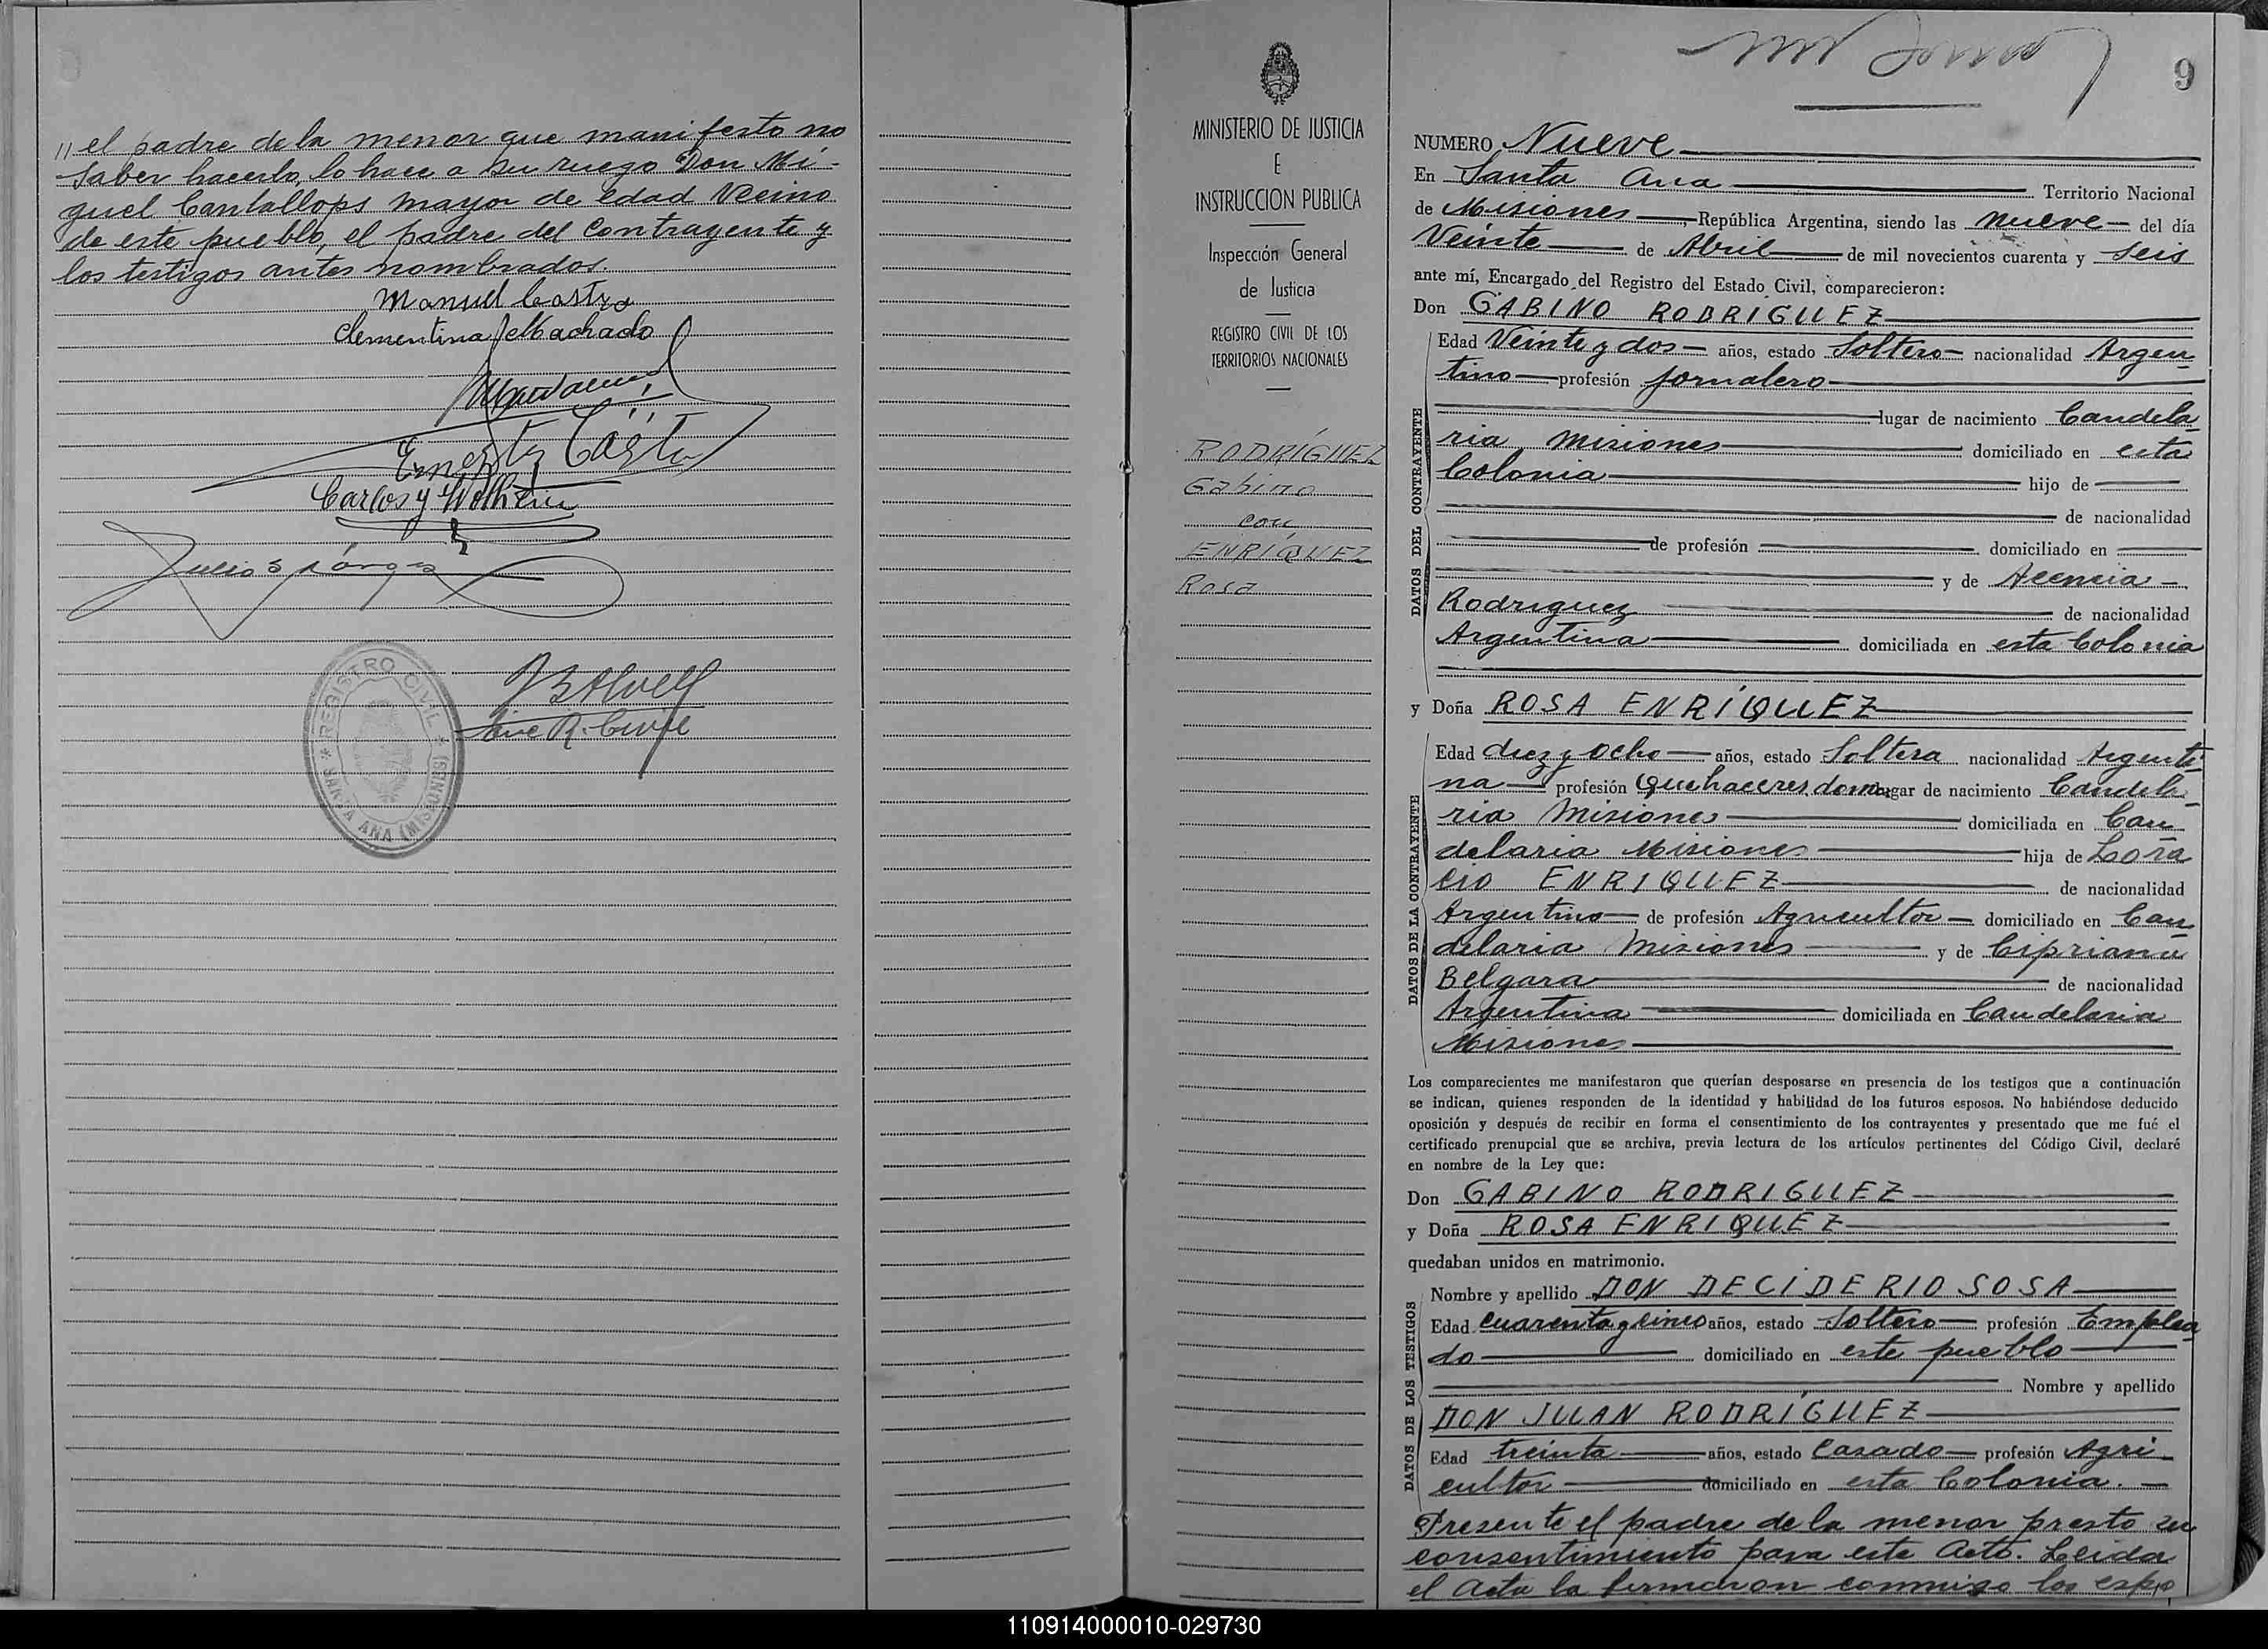 " el padre de la menor que manifesto no
saber hacerlo, lo hace a su ruego Don Mi-
guel Cantallops mayor de edad vecino
de este pueblo, el padre del contrayente y
los testigos antes nombrados.
Manuel Castro
Clementina Machado
Carlos y
Julio
Jefe R. Civil
REGISTRO CIVIL
SANTA ANA (MISIONES)
MINISTERIO DE JUSTICIA
E
INSTRUCCION PUBLICA
Inspección General
de Justicia
REGISTRO CIVIL DE LOS
TERRITORIOS NACIONALES
RODRÍGUEZ
Gabino
con
ENRÍQUEZ
Rosa
9
NUMERO Nueve
En Santa Ana Territorio Nacional
de Misiones, República Argentina, siendo las nueve del día
Veinte de Abril de mil novecientos cuarenta y seis
ante mí, Encargado del Registro del Estado Civil, comparecieron:
Don GABINO RODRIGUEZ
DATOS DEL CONTRAYENTE
Edad Veinte y dos años, estado Soltero nacionalidad Argen
tino profesión Jornalero
lugar de nacimiento Candela
ria Misiones domiciliado en esta
Colonia hijo de
de nacionalidad
de profesión domiciliado en
y de Acencia
Rodriguez de nacionalidad
Argentina domiciliada en esta Colonia
y Doña ROSA ENRÍQUEZ
DATOS DE LA CONTRAYENTE
Edad diez y ocho años, estado Soltera nacionalidad Argenti
na profesión Quehaceres dom lugar de nacimiento Candela
ria Misiones domiciliada en Can
delaria Misiones hija de Lora
cio ENRIQUEZ de nacionalidad
Argentino de profesión Agricultor domiciliado en Can
delaria Misiones y de Cipriana
Belgara de nacionalidad
Argentina domiciliada en Candelaria
Misiones
Los comparecientes me manifestaron que querían desposarse en presencia de los testigos que a continuación
se indican, quienes responden de la identidad y habilidad de los futuros esposos. No habiéndose deducido
oposición y después de recibir en forma el consentimiento de los contrayentes y presentado que me fué el
certificado prenupcial que se archiva, previa lectura de los artículos pertinentes del Código Civil, declaré
en nombre de la Ley que:
Don GABINO RODRIGUEZ
y Doña ROSA ENRIQUEZ
quedaban unidos en matrimonio.
DATOS DE LOS TESTIGOS
Nombre y apellido DON DECIDERIO SOSA
Edad cuarenta y cinco años, estado Soltero profesión Emplea
do domiciliado en este pueblo
Nombre y apellido
DON JUAN RODRÍGUEZ
Edad treinta años, estado Casado profesión Agri
cultor domiciliado en esta Colonia.
Presente el padre de la menor presto su
consentimiento para este acto. Leida
el acta la firmaron conmigo los espo
110914000010-029730